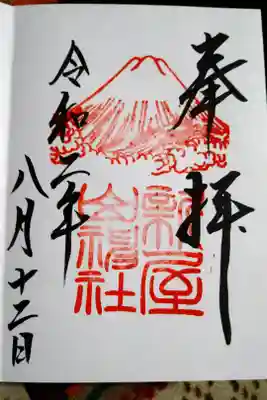 奉拝
新屋
山神社
令和二年
八月十二日